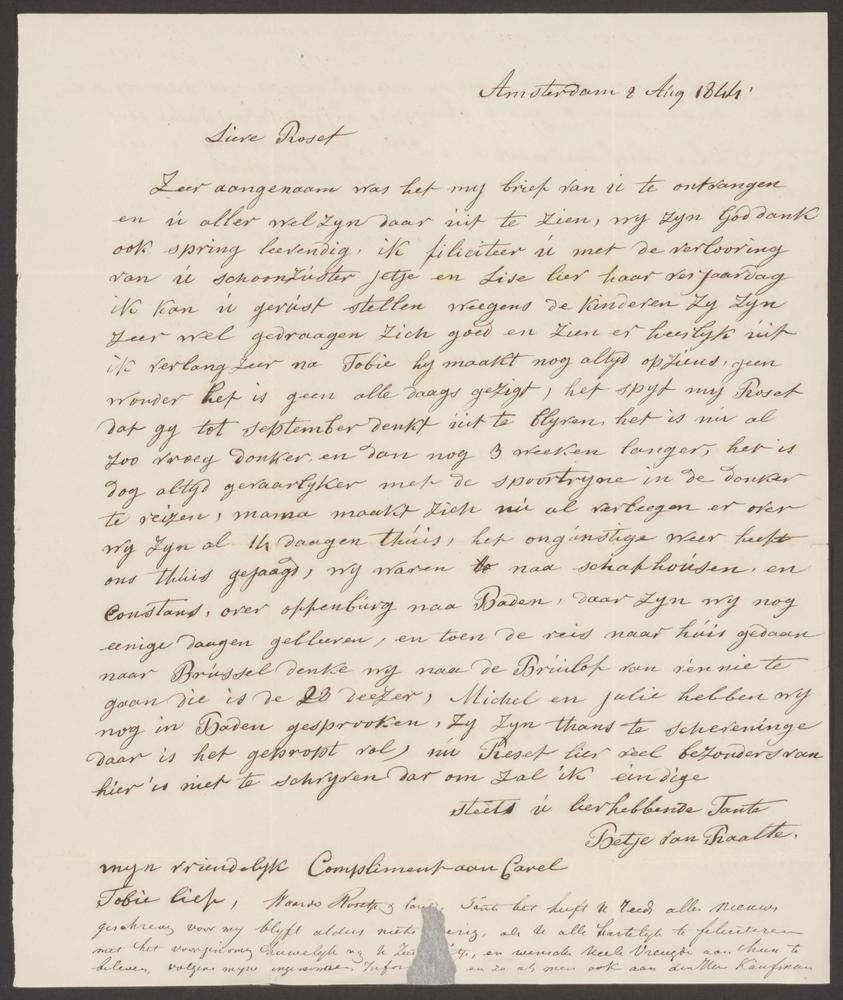 Amsterdam 2 Aug 1844
Lieve Roset
Zeer aangenaam was het my brief van ú te ontvangen
en ú aller wel zyn daar úit te zien, wy zyn God dank
ook spring leevendig, ik filiciteer ú met de verlooring
van ú schoonzúster Jetje en Lise lier haar verjaardag
ik kan ú gerúst stellen weegens de kinderen zy zyn
zeer wel gedraagen zich goed en zien er heerlyk úit
ik verlang zeer na Tobie hy maakt nog altyd opziens, geen
wonder het is geen alle daags gezigt, het spyt my Roset
dat gy tot september denkt úit te blyven, het is nú al
zoo vroeg donker, en dan nog 3 weeken langer, het is
dog altyd gevaarlyker met de spoortryne in de donker
te reizen, mama maakt zich nú al verleegen er over
wy zyn al 14 daagen thúis, het ongúnstige weer heeft
ons thúis gejaagd, wy waren naa schafhoúsen, en
Constans, over offenbúrg naa Baden, daar zyn wy nog
eenige daagen gebleeven, en toen de reis naar húis gedaan
naar Brússel denke wy naa de Brúilof van rennie te
gaan die is de 23 deezer, Michel en Julie hebben wy
nog in Baden gesprooken, zy zyn thans te scheveninge
daar is het gepropt vol, nú Roset lier veel bezonders van
hier is niet te schryven dar om zal ik eindige
steets ú lierhebbende Tante
Betje van Raalte.
myn vriendelyk Compliment aan Carel
Tobie lief, Waarde Rosetje Tante bet heeft U reeds alles nieuws
geschreven voor my blyft alduis niets overig, als U alle hartelyk te feliciteren
met het voorgenomen huwelyk van U en wensche veele Vreugde aan hun te
beleven, volgens myne ingenomen Infor en zo als men ook aan den Heer Kaufman